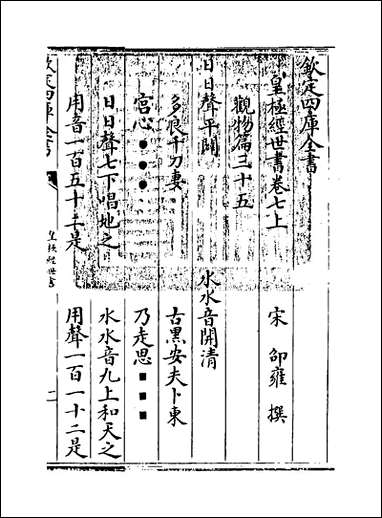 欽定四庫全書
皇極經世書卷七上
宋 邵雍 撰
觀物篇三十五
日日聲平闢
水水音開清
多良千刀妻
古黑安夫卜東
宮心●●●
乃走思■■■
日日聲七下唱地之
水水音九上和天之
用音一百五十二是
用聲一百一十二是
欽定四庫全書
皇極經世書